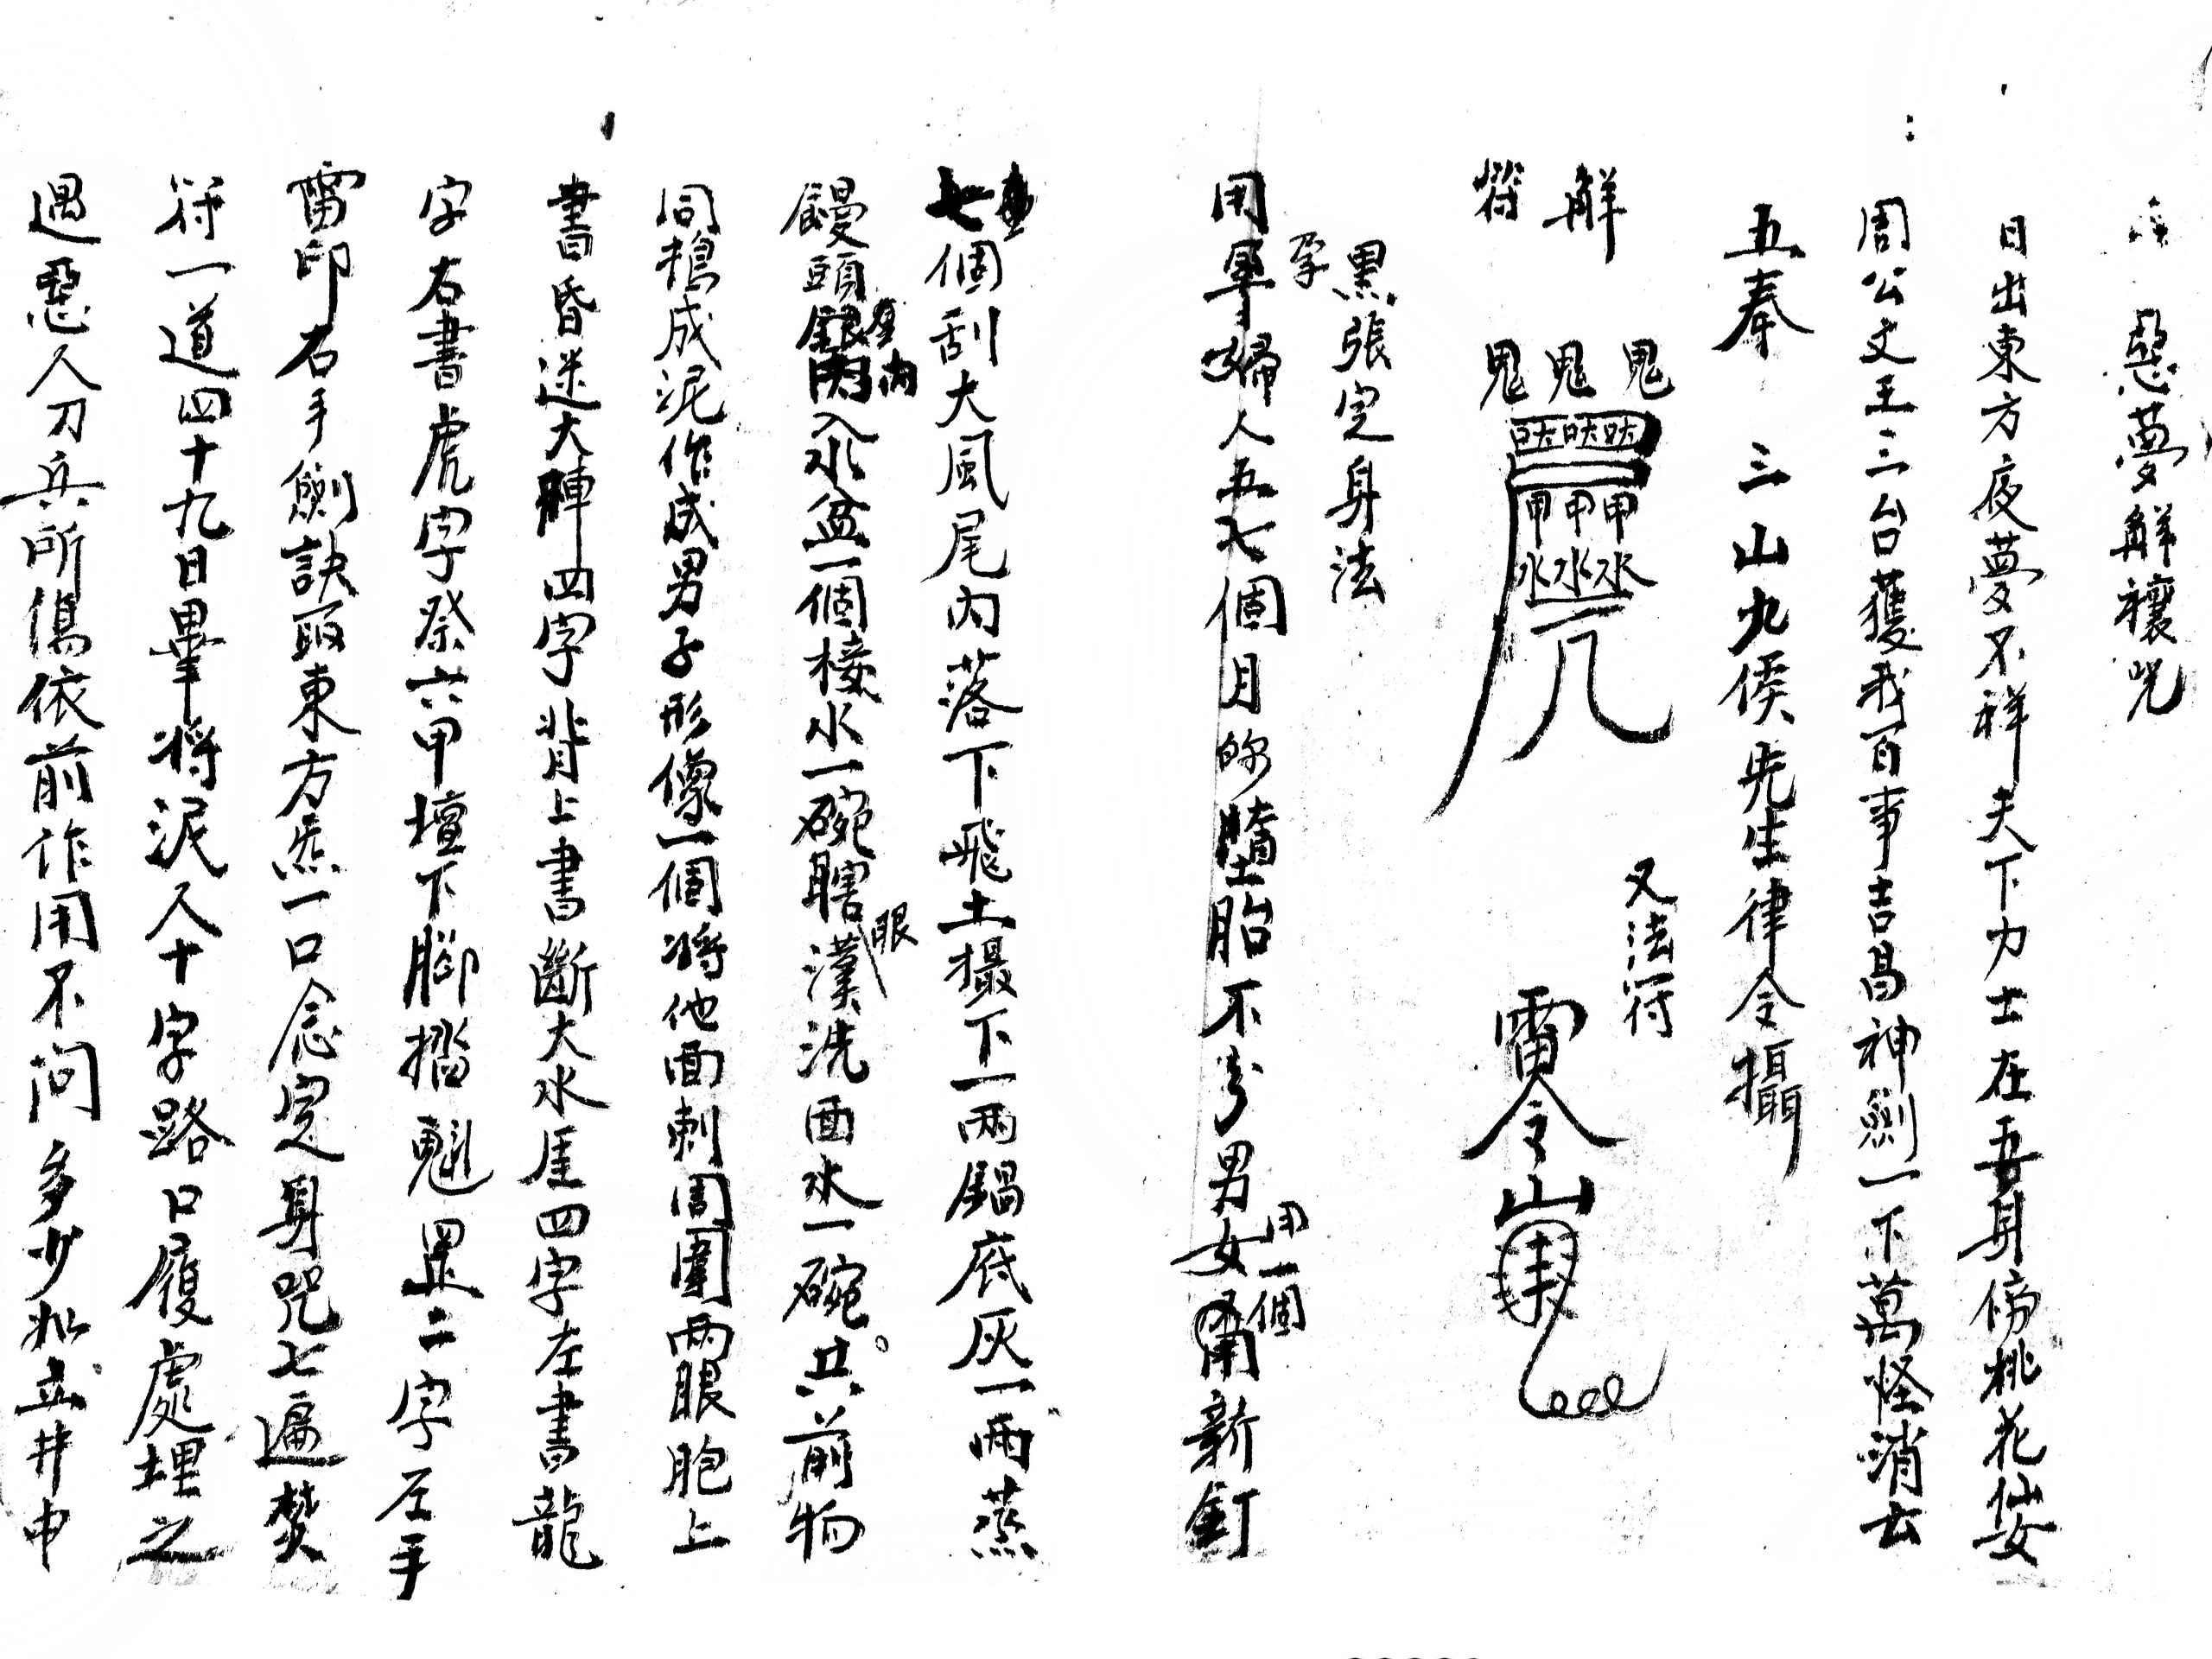 惡夢解禳咒
日出東方夜夢不祥天下力士在吾身傍桃花仙女
周公文王三台護我百事吉昌神劍一下萬怪消去
五奉 三山九侯先生律令攝
解符
鬼鬼鬼
甲甲甲
水水水
又法符
雷令山
黑張定身法
孕
用孕婦人五七個月的墮胎不分男女用一個新釘
七個刮大風尾內落下飛土撮下一兩鍋底灰一兩蒸
饅頭入水盆一個接水一碗瞎眼漢洗面水一碗共前物
同搗成泥作成男子形像一個將他面刺周圍兩眼胞上
書昏迷大陣四字背上書斷大水崖四字左書龍
字右書虎字祭六甲壇下腳踏魁罡二字左手
雷印右手劍訣取東方炁一口念定身咒七遍焚
符一道四十九日畢將泥人十字路口履處埋之
遇惡人刀兵所傷依前作用不問多少 立井中